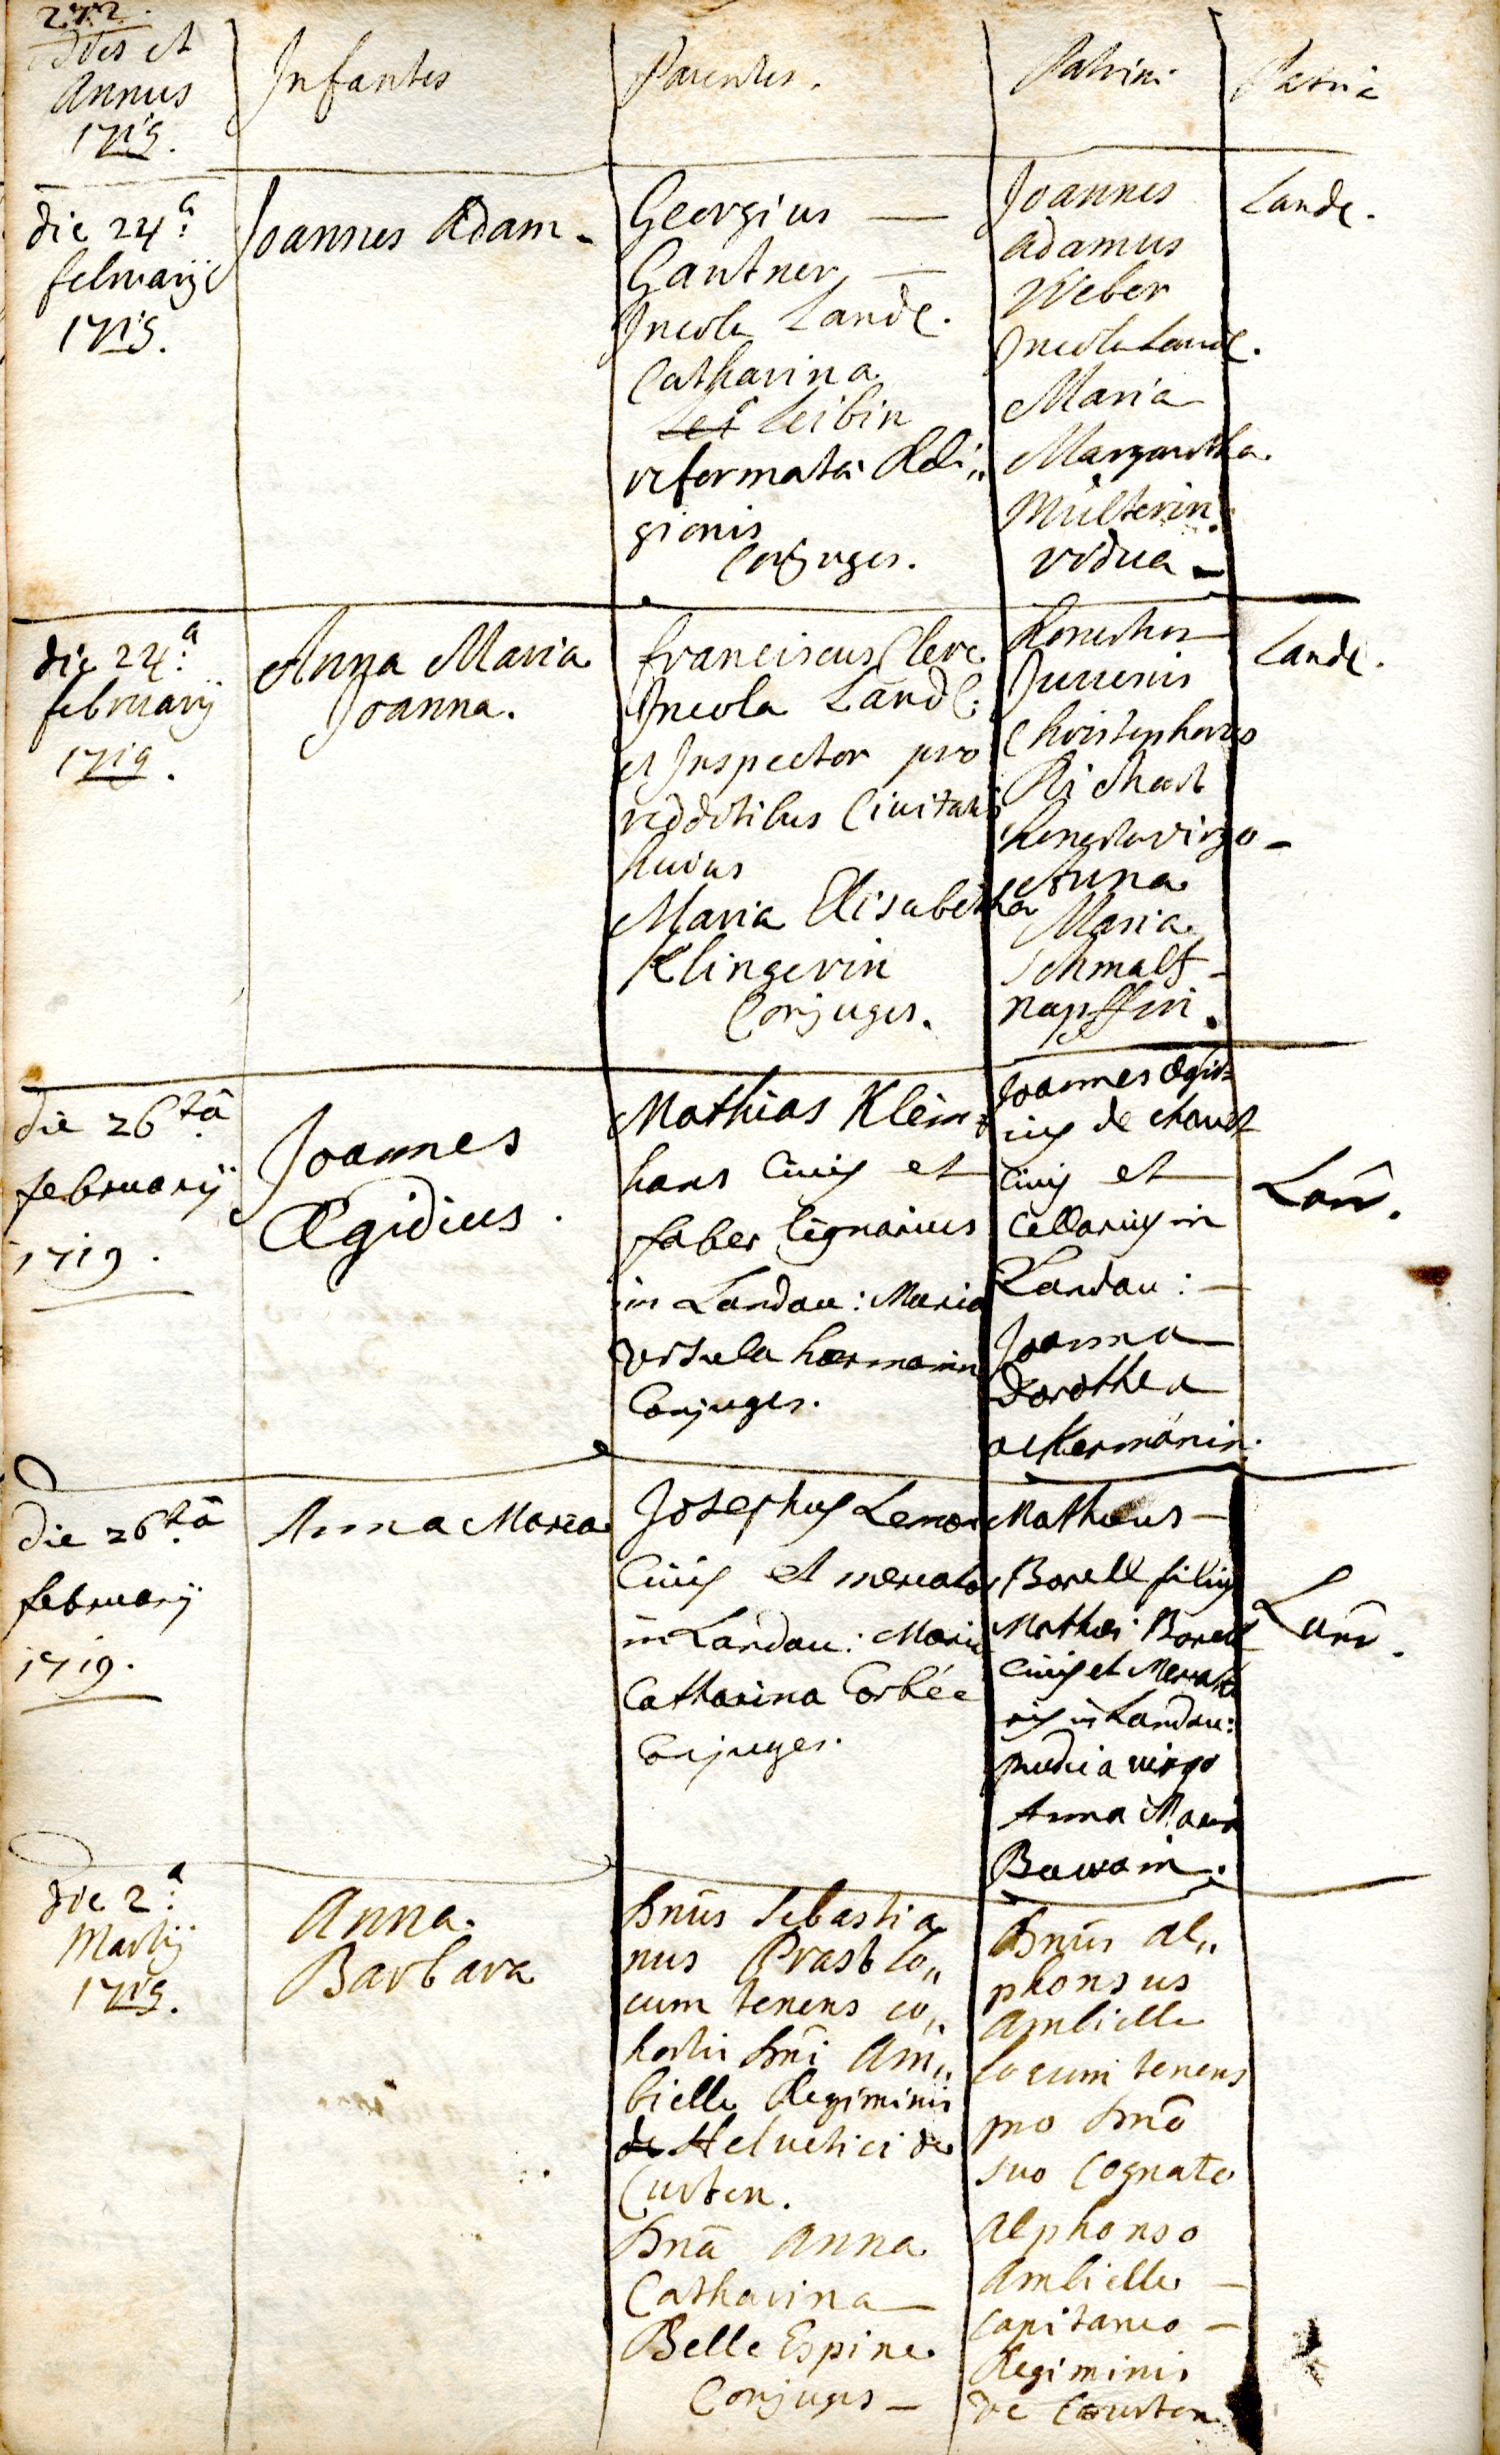 272.
Dies et
Annus
1719.
Infantes
Parentes.
Patrini
Patria
die 24a
februarij
1719.
Joannes Adam
Georgius —
Gantner —
Incola Land.
Catharina
Lei Leibin
reformatæ Reli„
gionis
Conjuges.
Joannes
Adamus
Weber
Incola Land.
Maria
Margaretha
Müllerin
vidua
Land.
die 24a
februarij
1719.
Anna Maria
Joanna.
franciscus Clerc
Incola Land.
et Inspector pro
redditibus Civitatis
huius
Maria Elisabetha
Klingerin
Conjuges.
honestus
Juvenis
Christophorus
Richart
honesta virgo
Anna
Maria
Schmaltz
napffin.
Land.
die 26ta
februarij
1719.
Joannes
Ægidius.
Mathias Klein
hans Civis et
faber lignarius
in Landau: Maria
Ursula hermanin
Conjuges.
Joannes Ægid
ius de
Civis et
Cellarius in
Landau: —
Joanna
Dorothea
ackermänin.
Lan.
die 26ta
februarij
1719.
Anna Maria
Josephus
Civis et mercator
in Landau: Maria
Catharina Corbée
Conjuges.
Matheus
Borell filius
Mathei Borell
Civis et Mercato
ris in Landau:
pudica virgo
Anna Maria
Lan.
die 2a
Martij
1719.
Anna
Barbara
Dnus Sebastia
nus Prast Lo„
cum tenens co„
hortis Dni Am„
bielle Regiminis
de Helvetici de
Curten.
Dna Anna
Catharina
Belle Espine
Conjuges —
Dnus Al„
phonsus
Ambielle
Locum tenens
pro Dno
suo Cognato
Alphonso
Ambielle —
Capitaneo —
Regiminis
de Courten